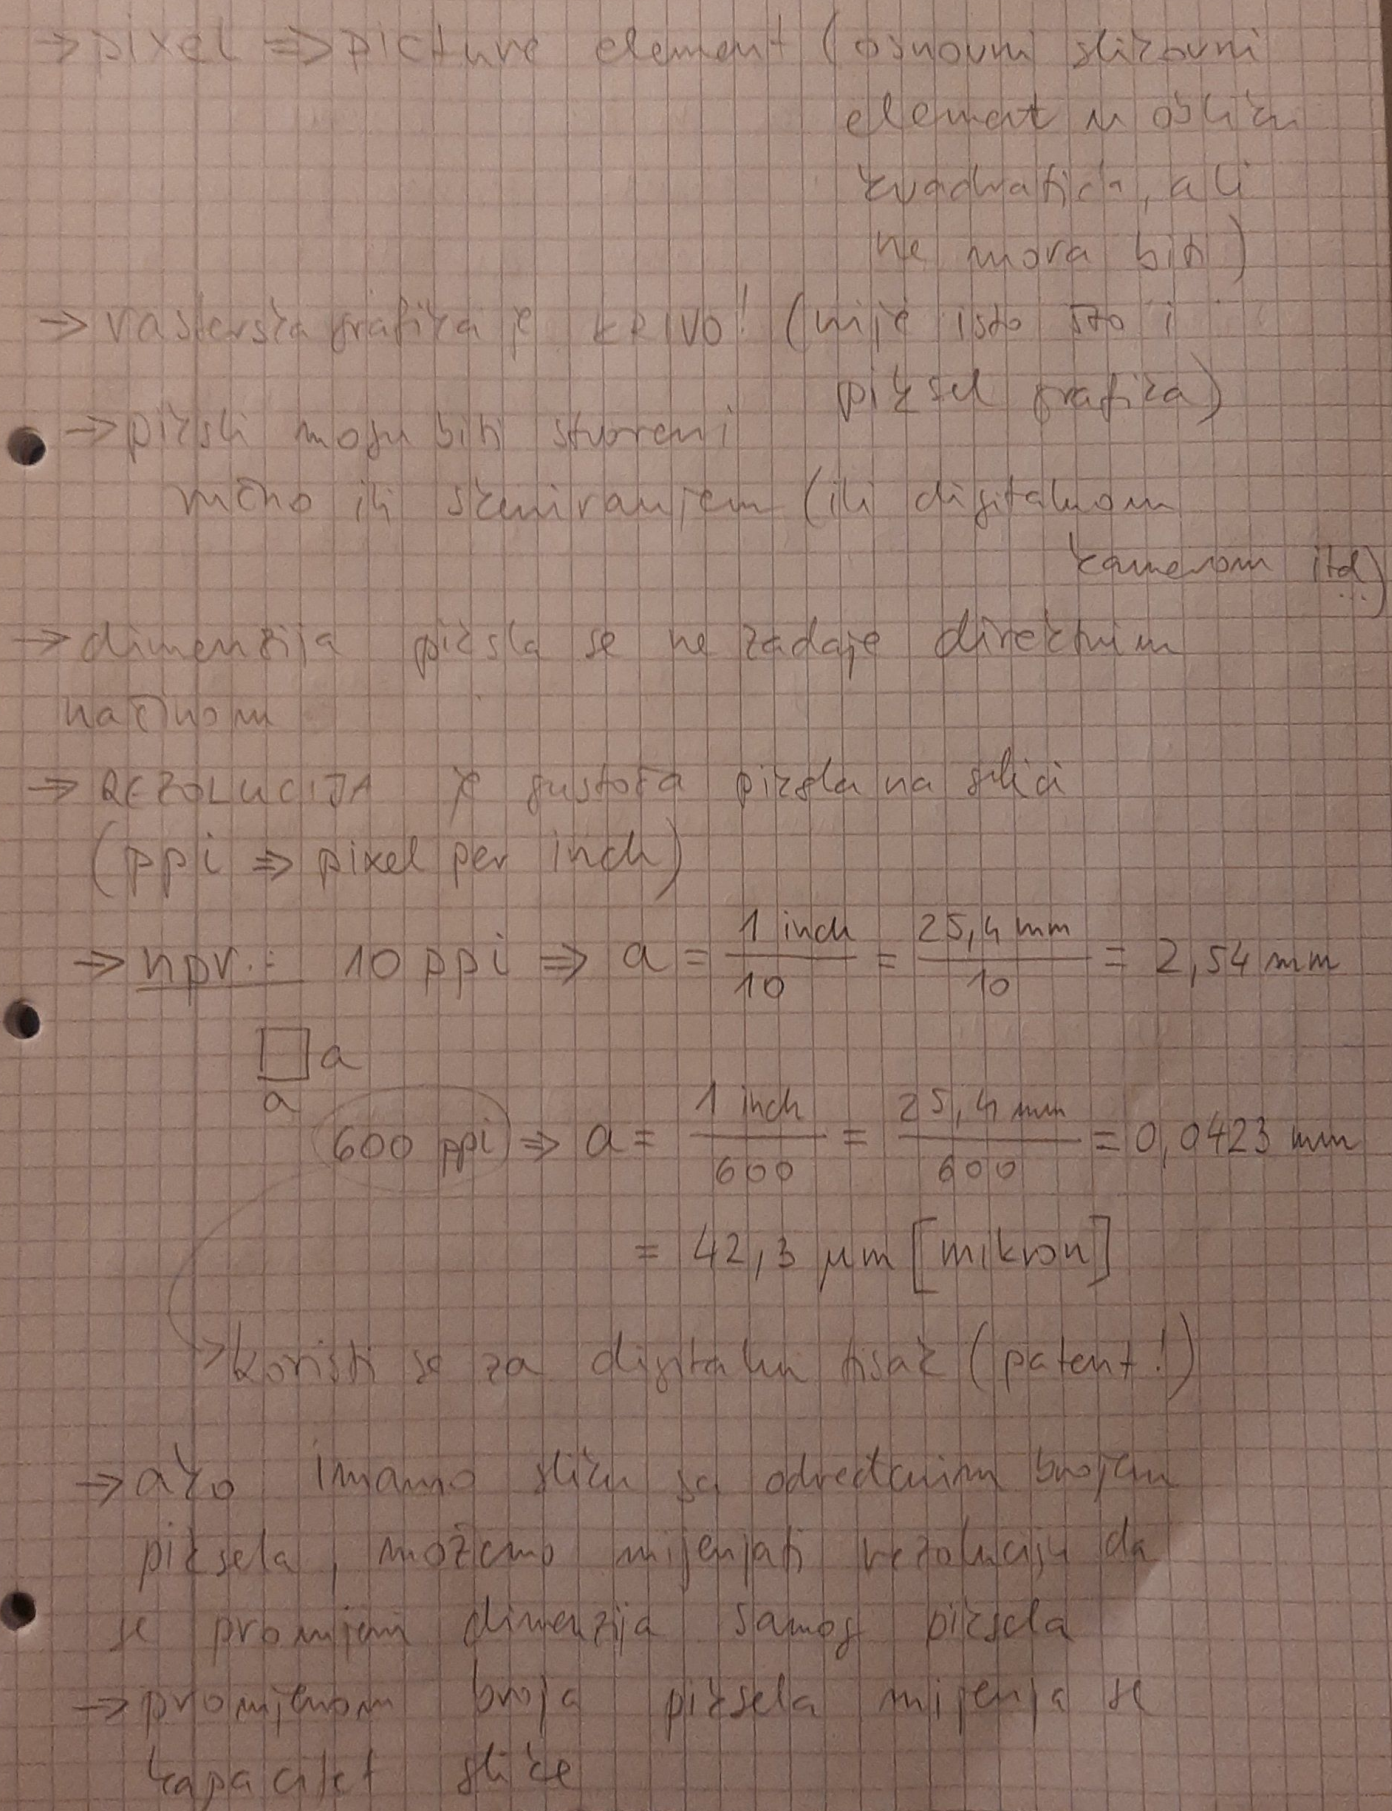 → pixel ⇒ picture element (osnovni slikovni
element u obliku
kvadratića, ali
ne mora biti)
→ rasterska grafika je KRIVO! (nije isto što i
piksel grafika)
→ piksli mogu biti stvoreni
ručno ili skeniranjem (ili digitalnom
kamerom itd)
→ dimenzija piksla se ne zadaje direktnim
načinom
→ REZOLUCIJA je gustoća piksla na slici
(ppi ⇒ pixel per inch)
→ npr.: 10 ppi ⇒ a = 1 inch / 10 = 25,4 mm / 10 = 2,54 mm
a
a
600 ppi ⇒ a = 1 inch / 600 = 25,4 mm / 600 = 0,0423 mm
= 42,3 μm [mikron]
→ koristi se za digitalni tisak (patent!)
→ ako imamo sliku sa određenim brojem
piksela, možemo mijenjati rezoluciju da
se promijeni dimenzija samog piksela
→ promjenom broja piksela mijenja se
kapacitet slike